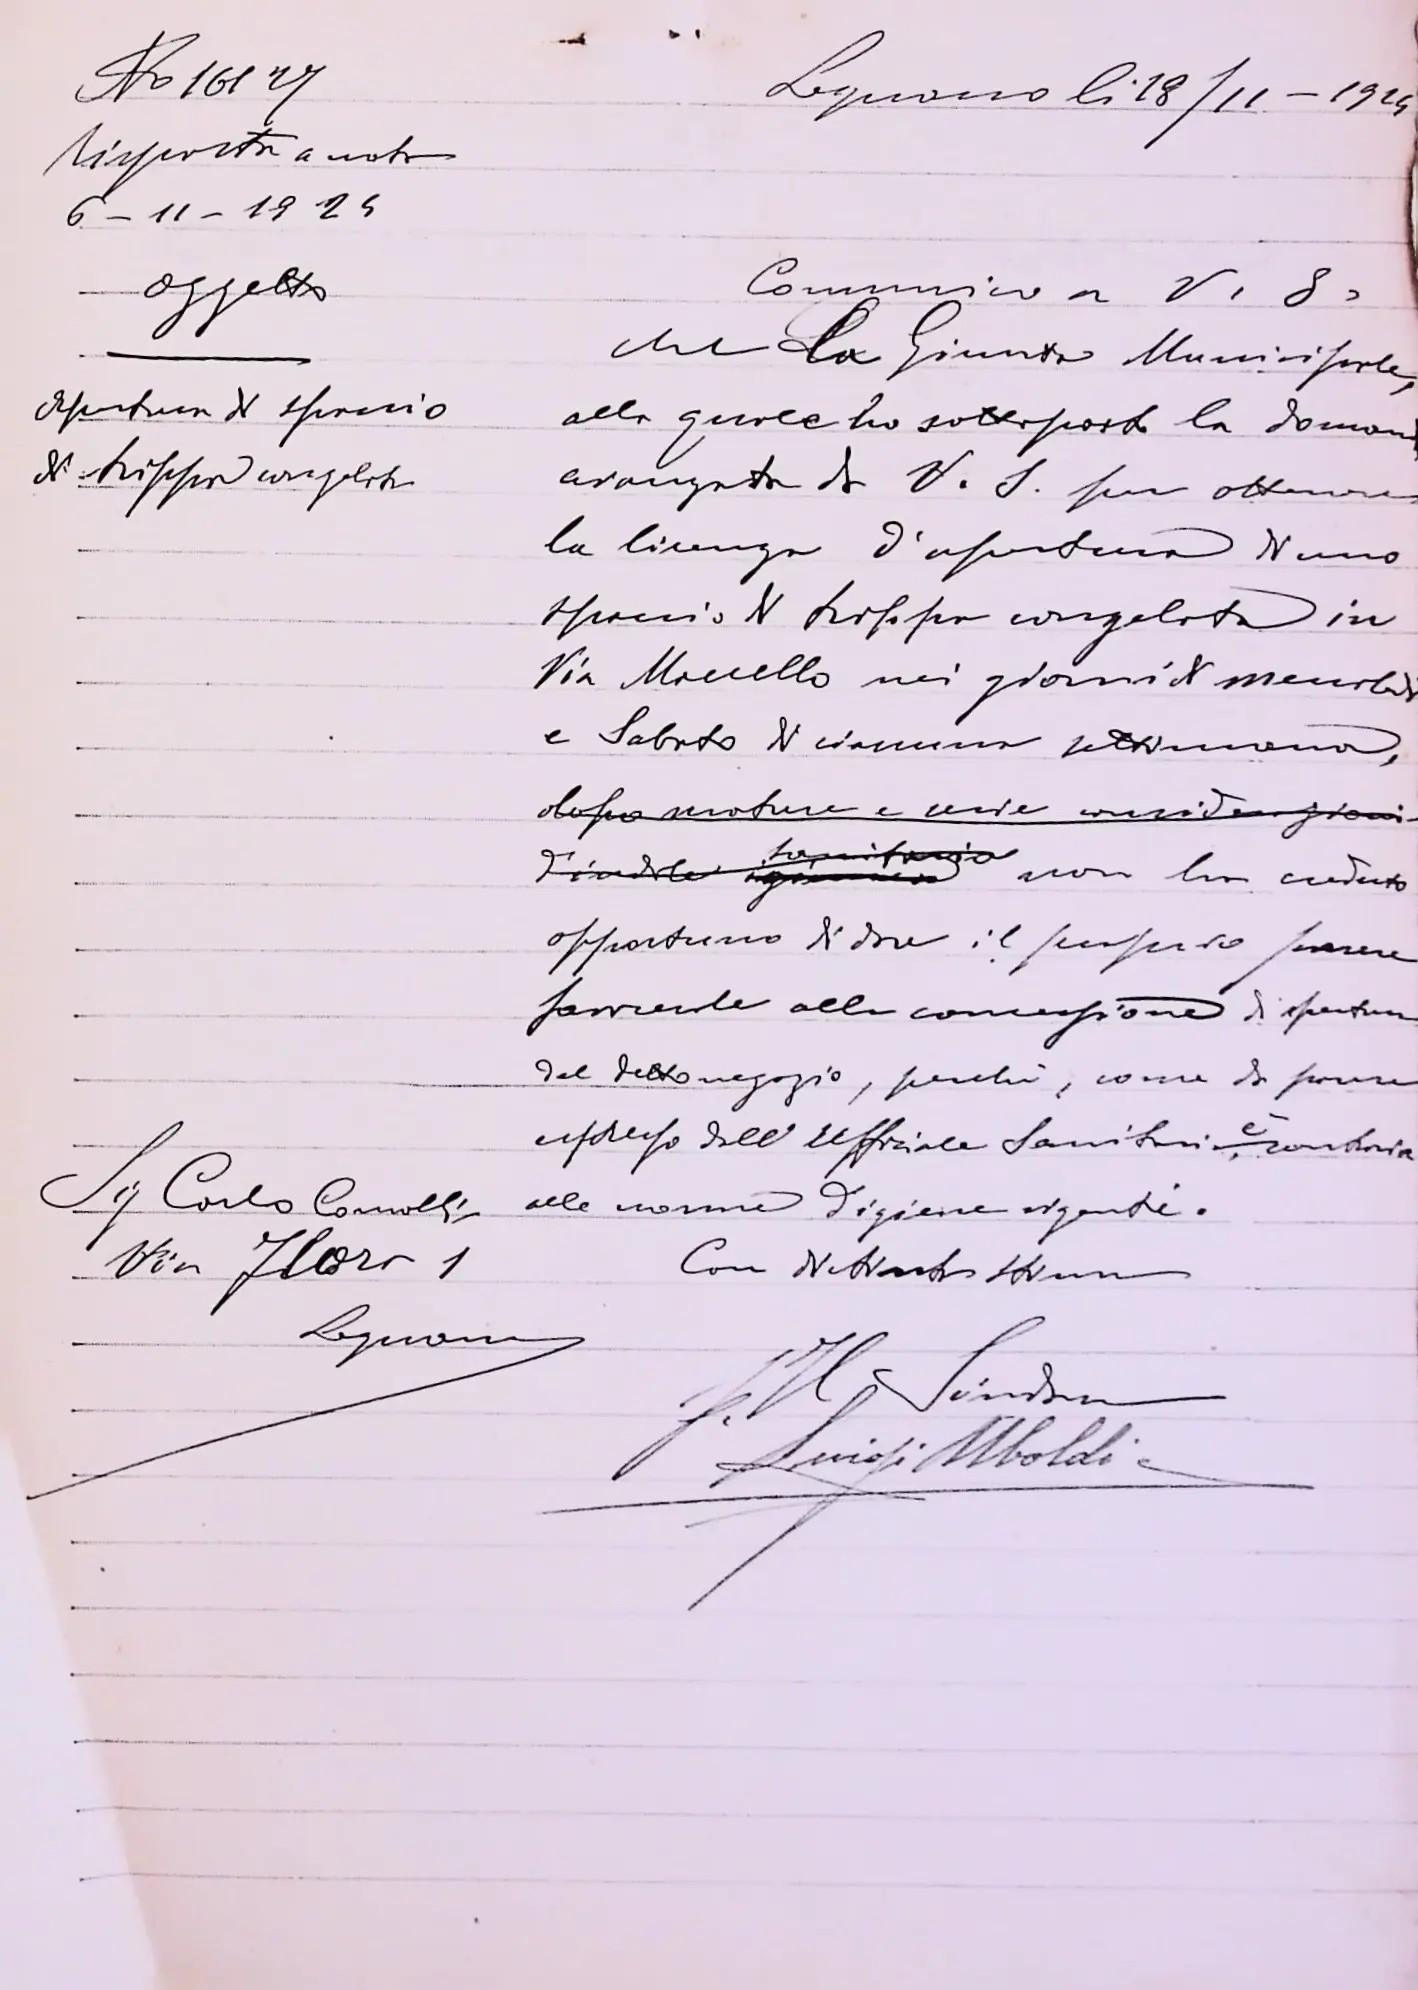 No 16127
Legnano li 18/11-1924
Risposta a nota
6-11-1924
Oggetto
apertura di spaccio
di trippa congelata
Comunico a V. S.
che la Giunta Municipale,
alla quale ho sottoposto la domanda
avanzata da V. S. per ottenere
la licenza d'apertura di uno
spaccio di trippa congelata in
Via Macello nei giorni di mercoledì
e Sabato di ciascuna settimana,
dopo mature e serie considerazioni
d'indole sanitaria non ha creduto
opportuno di dare il proprio parere
favorevole alla concessione di apertura
del detto negozio, perchè, come da parere
espresso dall'Ufficiale Sanitario, è contraria
alle norme d'igiene vigenti.
Con distinta stima
Il Sindaco
f. Luigi Uboldi
Sig Carlo Comolli
Via Flora 1
Legnano